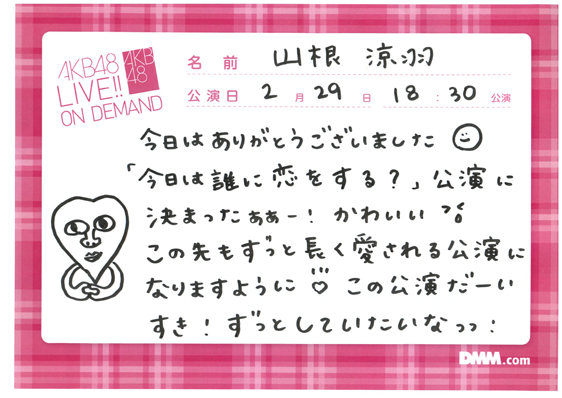 AKB48
LIVE!!
ON DEMAND
AKB
48
名前 山根 涼羽
公演日 2月29日 18:30公演
今日はありがとうございました
「今日は誰に恋をする?」公演に
決まったぁぁー! かわいい
この先もずっと長く愛される公演に
なりますように この公演だーい
すき! ずっとしていたいなっっ!
DMM.com